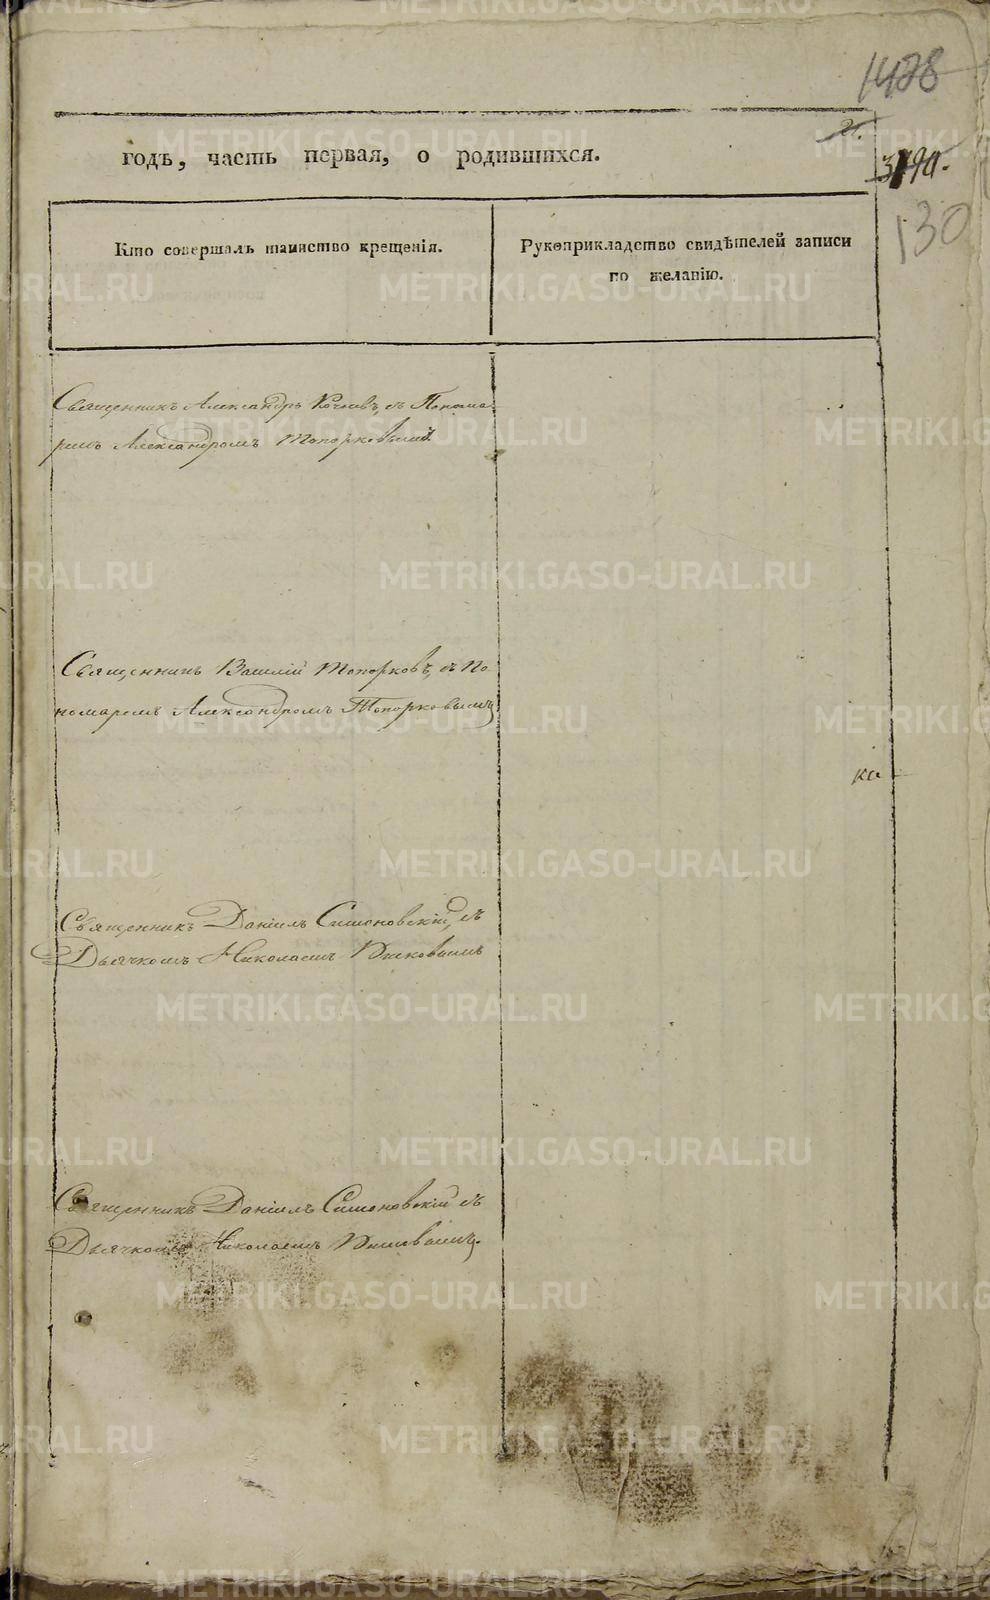 1428
21.
годъ, часть первая, о родившихся.
130
Кто совершалъ таинство крещенія.
Рукоприкладство свидѣтелей записи
по желанію.
Священникъ Александръ съ Понома
ремъ Александромъ Топорковымъ.
Священникъ Василій Топорковъ, съ По
номаремъ Александромъ Топорковымъ
ка
Священникъ Даніилъ Симоновскій, съ
Дьячкомъ Николаемъ
Священникъ Даніилъ Симоновскій съ
Дьячкомъ Николаемъ
METRIKI.GASO-URAL.RU